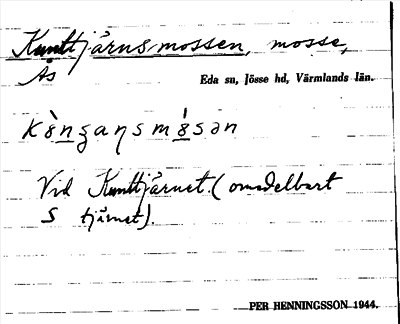 Kunttjärnsmossen, mosse,
Ås
Eda sn, Jösse hd, Värmlands län.
Vid Kunttjärnet (omedelbart
S tjärnet).
PER HENNINGSSON 1944.